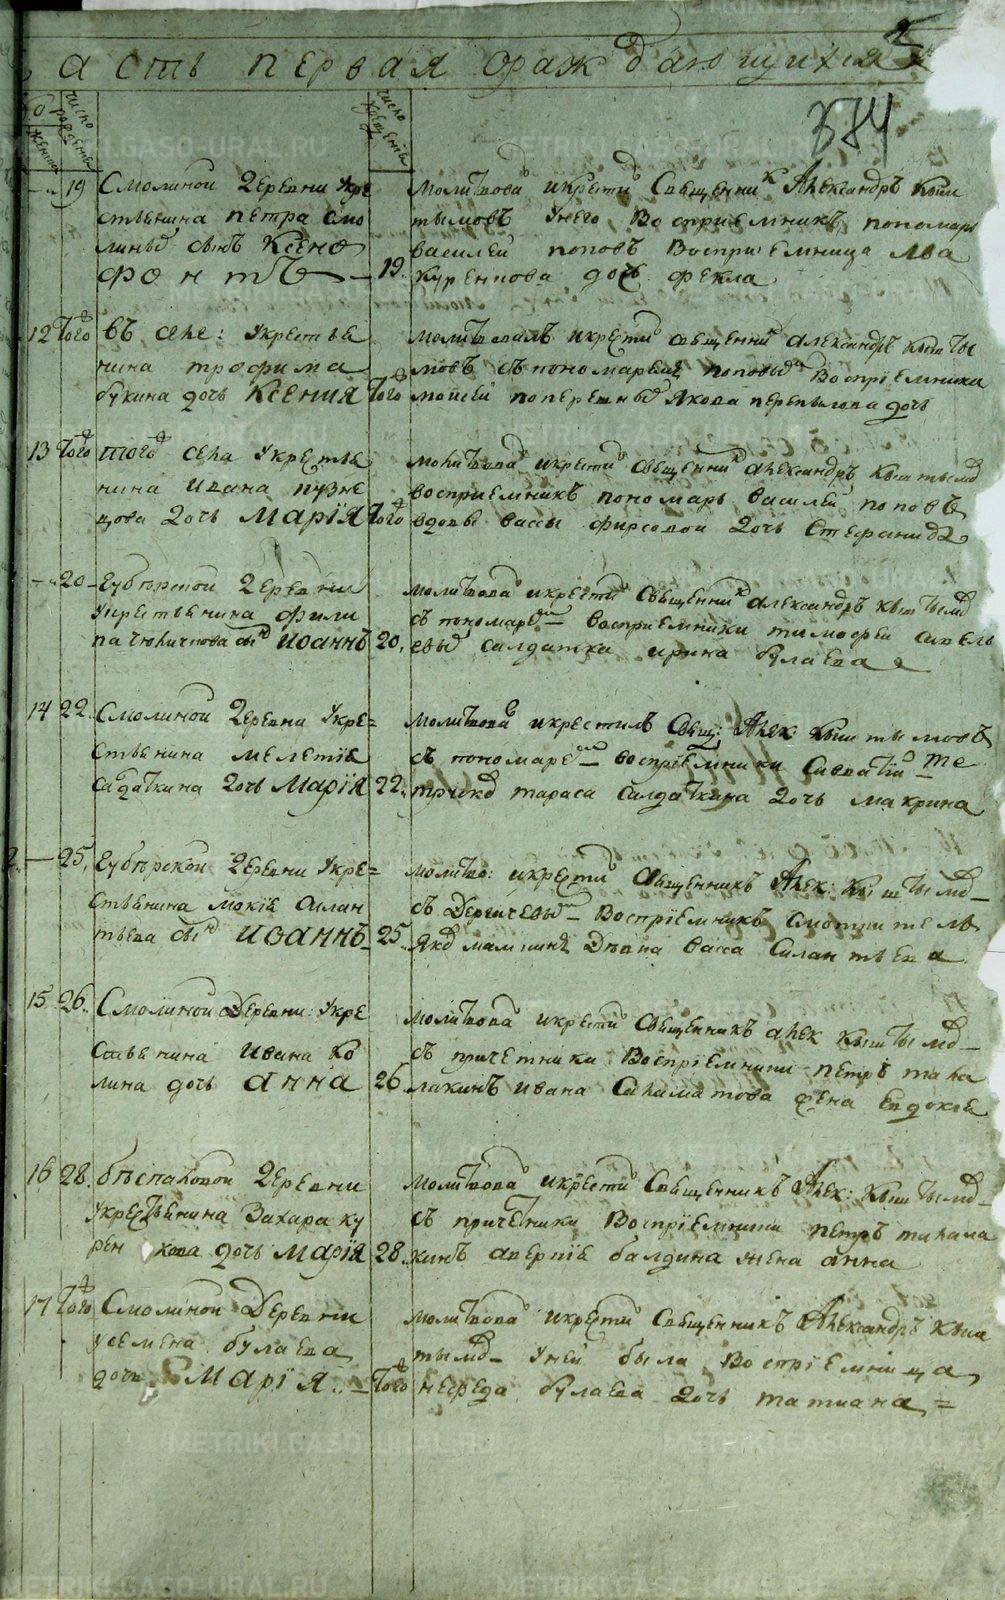 асть первая ораждающихся 5
374
число рождения
число крещения
женска
19 Смолиной деревни укре
стьянина петра смо
линых сынъ Ксено
фонтъ 19
молитвовал и крестил Священник Александръ Кыш
тымовъ у него Восприемникъ пономарь
василей поповъ Восприемница
Куренкова дочь фекла
12 Того въ селе: укрестья
нина трофима
букина дочь Ксения Того
молитвовалъ и крестил священник александръ кышты
мовъ съ пономаремъ поповым Восприемники
моисей поперешных Якова перепылова дочь
13 Того того села укрестья
нина ивана кузне
цова дочь Мария Того
молитвовал и крестил священник александръ кыштымов
восприемникъ пономарь василей поповъ
вдовы вассы фирсовой дочь Стефанида
20 деревни
укрестьянина фили
па сын Иоаннъ 20
молитвовал и крестил священник александръ кыштымов
съ пономарем восприемники тимофей савель
евых салдатка ирина булаева
14 22 Смолиной деревни укре=
стьянина мелетия
салдаткина дочь Мария 22
молитвовал и крестилъ Свящ: Алек: Кыштымовъ
съ пономарем восприемники Савватий ме
тараса Салдаткина дочь макрина
25 деревни укре=
стьянина мокия силан
тьева сын Иоаннъ 25
молитво: и крестил священникъ Алек: Кыштымов
съ Дерягиевым Восприемникъ смотритель
Яков мамшин Девка васса Силантьева
15 26 Смолиной Деревни: укре
стьянина ивана ко
лина дочь Анна 26
молитвовал и крестил священникъ алек кыштымов
съ причетники Восприемники петръ мала
лакинъ ивана жена Евдокия
16 28 беспаловой деревни
укрестьянина Захара ку
рен кова дочь Мария 28
молитвовал и крестил Священникъ Алек: Кыштымов
съ причетники Восприемники петръ малала
кинъ аверкие балдина жена анна
17 Того Смолиной Деревни
усемена булаева
дочь Мария Того
молитвовал и крестил Священникъ Александръ Кыш
тымов у ней была Восприемница
нефеда булаева дочь татиана =
METRIKI.GASO-URAL.RU